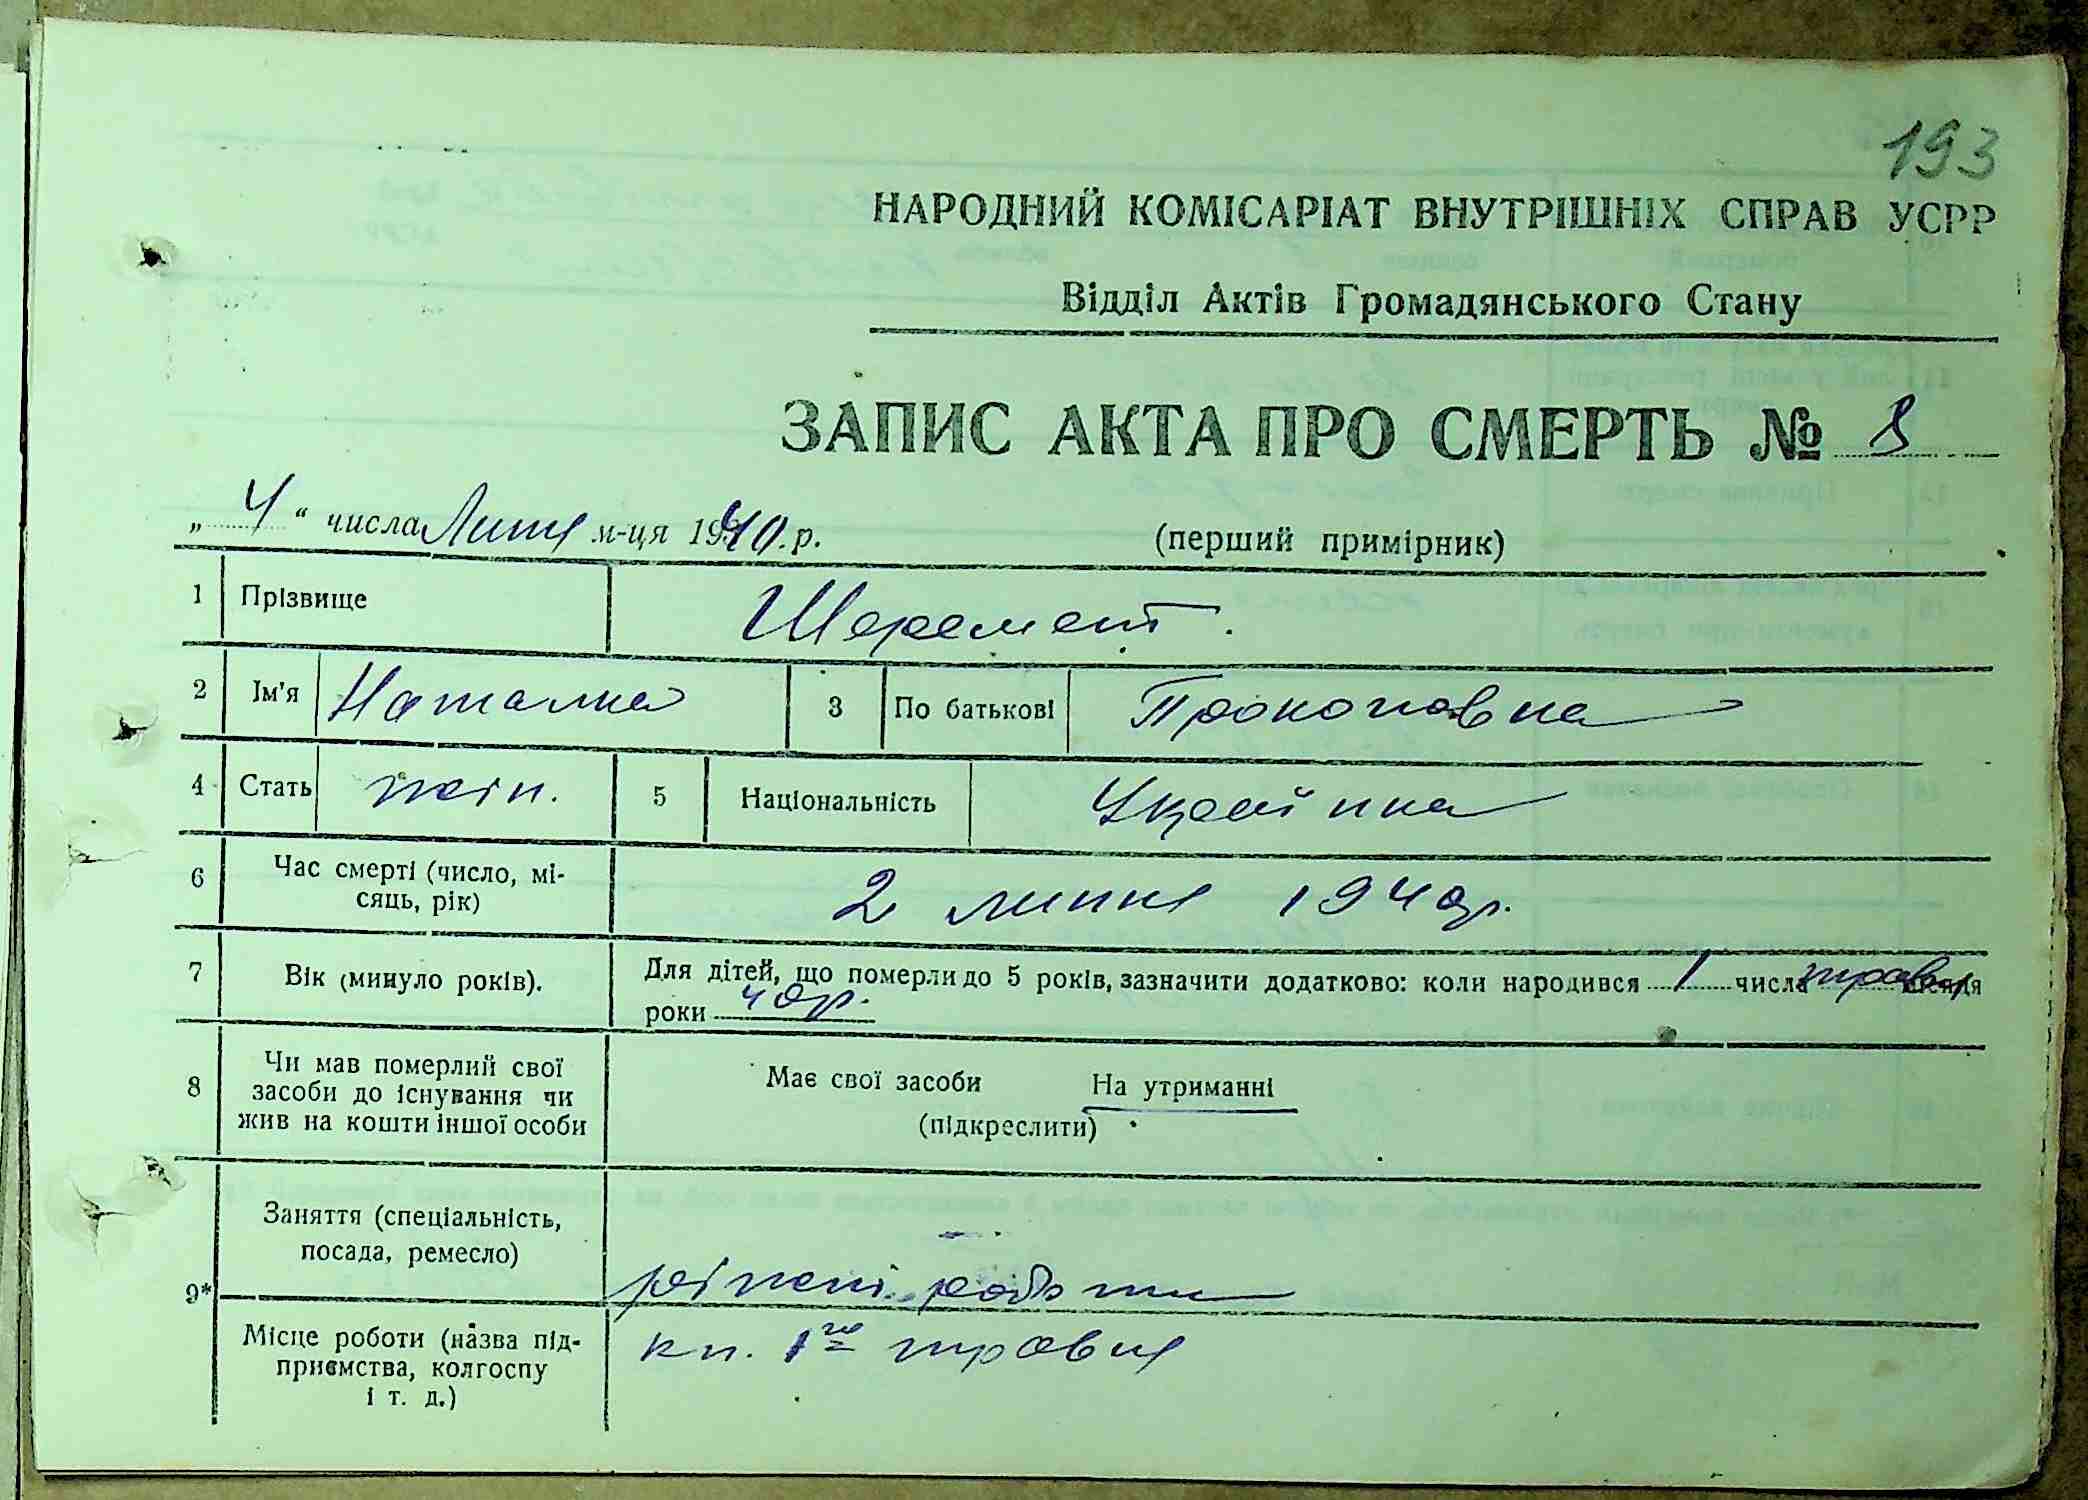 193
НАРОДНИЙ КОМІСАРІАТ ВНУТРІШНІХ СПРАВ УСРР
Відділ Актів Громадянського Стану
ЗАПИС АКТА ПРО СМЕРТЬ № 8
„ 4 “ числа Липня м-ця 1940 р.
(перший примірник)
1 Прізвище Шеремет.
2 Ім'я Наталка 3 По батькові Прокоповна
4 Стать жін. 5 Національність Українка
6 Час смерті (число, мі-
сяць, рік) 2 липня 1940р.
7 Вік (минуло років). Для дітей, що померли до 5 років, зазначити додатково: коли народився 1 числа травня місяця
роки 40р.
8 Чи мав померлий свої
засоби до існування чи
жив на кошти іншої особи
Має свої засоби На утриманні
(підкреслити)
9* Заняття (спеціальність,
посада, ремесло)
ріжні роботи
Місце роботи (назва під-
приємства, колгоспу
і т. д.)
кп. 1го травня